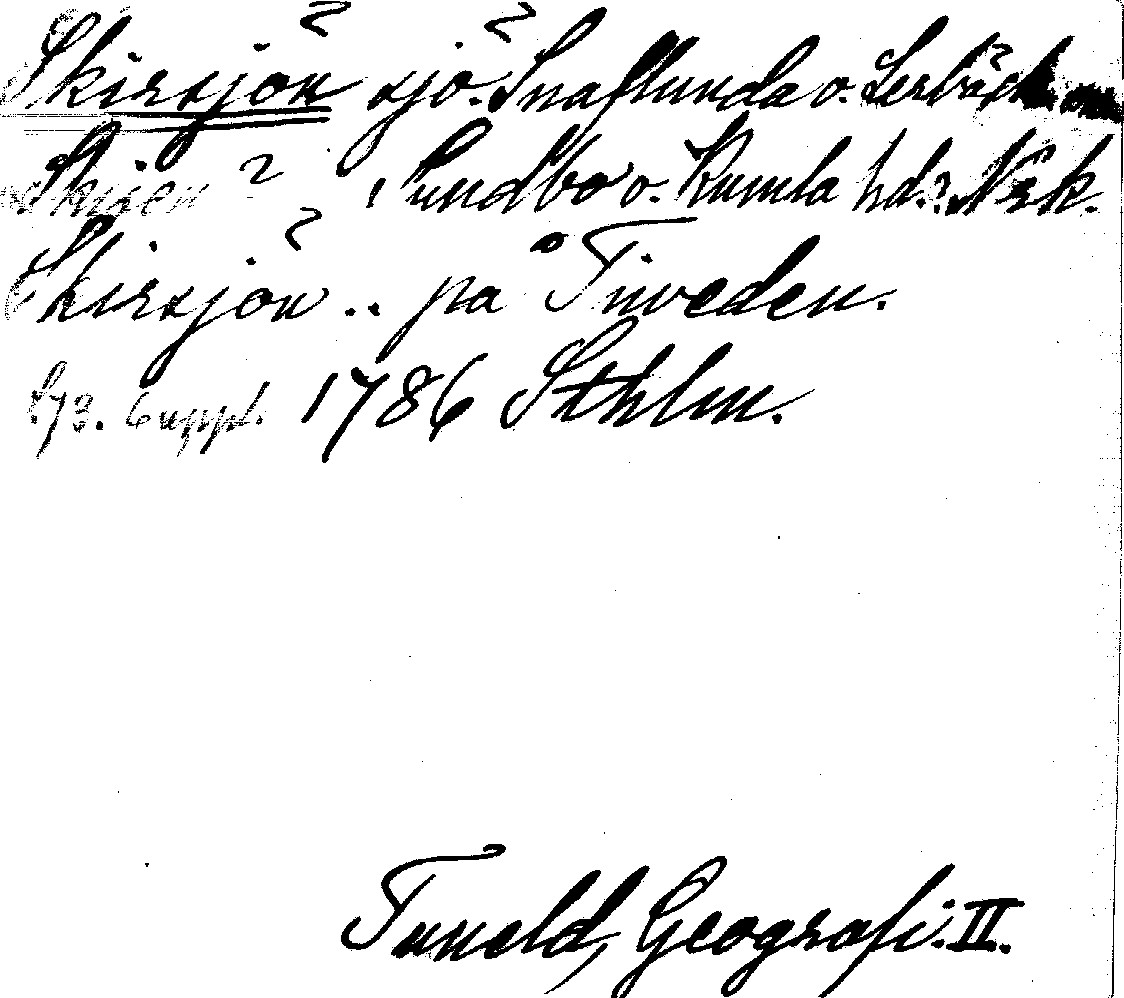 Skirsjön sjö. Snaflunda o. Lerbäck
Skiren Sundbo o. Kumla hd. Nrk.
Skirsjön .. på Tiveden.
s. 73. 6 uppl. 1786 Sthlm.
Tuneld, Geografi. II.